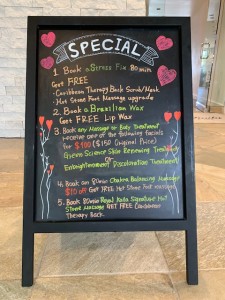 SPECIAL
1. Book a Stress Fix 80min
Get FREE
• Caribbean Therapy Back Scrub/Mask
• Hot Stone Foot Massage upgrade
2. Book a Brazilian Wax
Get FREE Lip Wax
3. Book any Massage or Body Treatment
receive one of the following facials
for $100 ($150 Original Price)
Green Science Skin Renewing Treatment
or
Enbrightenment Discoloration Treatment
4. Book an 80min Chakra Balancing Massage
$10 off Get FREE Hot Stone Foot massage
5. Book 80min Royal Signature Hot
Stone Massage Get FREE Caribbean
Therapy Back